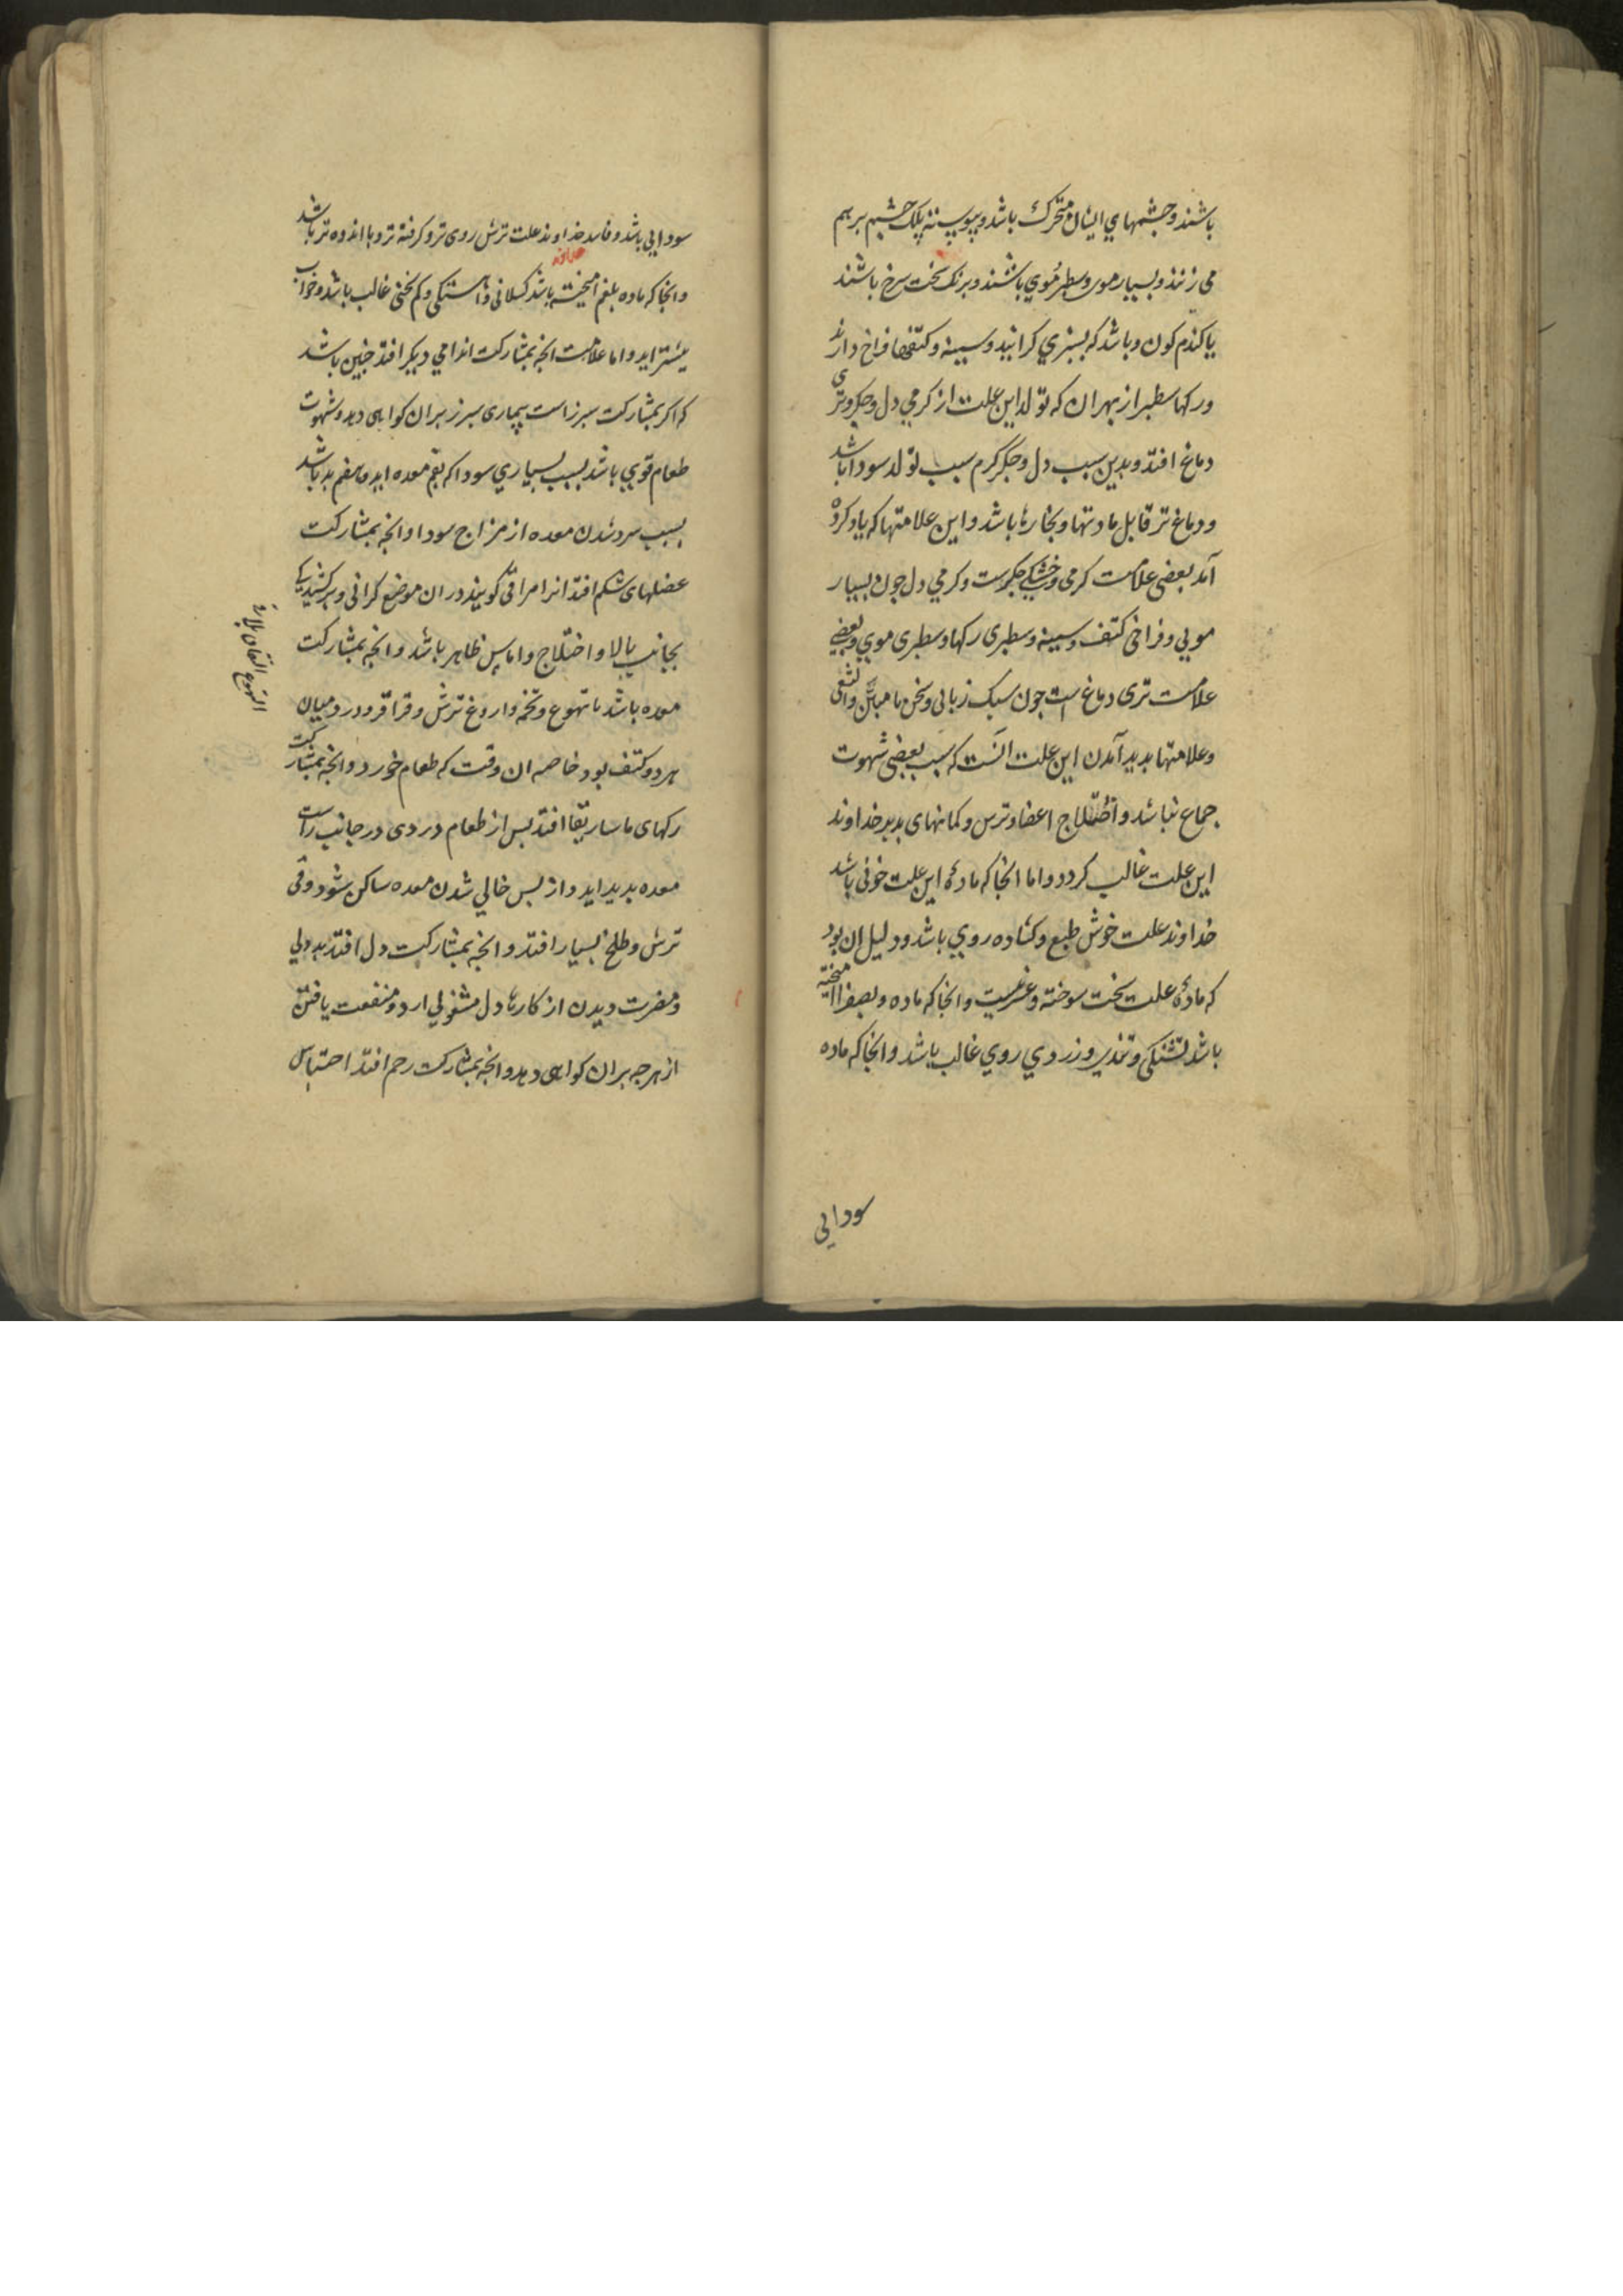 باشند و چشمهاي ایشان متحرک باشد و پیوسته پلک چشم بر هم
می زنند و بسیار موی و سطبر موي باشند و برنک سخت سرخ باشند
یا کندم کون و باشد که بسبزي کراید و سینه و کتفها فراخ دارند
و رکها سطبر از بهر ان که تولد این علت از کرمي دل و جکر و تری
دماغ افتد و بدین سبب دل و جکر کرم سبب تولد سودا باشد
و دماغ تر قابل مادتها و بخارها باشد و این علامتها که یاد کرده
آمد بعضی علامت کرمی و خشکي جکرست و کرمي دل چون بسیار
مویي و فراخی کتف و سینه و سطبری رکها و سطبری موي و بعضي
علامت تری دماغ است چون سبک زبانی و سخن نا مبین و الثغی
و علامتها بدید آمدن این علت انست که بی سبب بعضی شهوت
جماع نباشد و اختلاج اعضا و ترس و کمانهای بد بر خداوند
این علت غالب کردد و اما انجا که مادۀ این علت خونی باشد
خداوند علت خوش طبع و کشاده روي باشد و دلیل ان بود
که مادۀ علت سخت سوخته و غریبست و انجا که ماده بصفرا امیخته
باشد تشنکی و تندی و زردي روي غالب باشد و انجا که ماده
سودایی
سودایي باشد و فاسد خداوند علت ترش روی تر و کرفته تر و با اندوه تر باشد
و انجا که ماده بلغم امیخته باشد کسلانی و اهستکی و کم سخنی غالب باشد و خواب
بیشتر اید و اما علامت انچه بمشارکت اندامي دیکر افتد چنین باشد
که اکر بمشارکت سپرز است بیماری سپرز بر ان کواهی دهد و شهوت
طعام قویي باشد بسبب بسیاري سودا که بفم معده اید و هضم بد باشد
بسبب سرد شدن معده از مزاج سودا و انچه بمشارکت
عضلهای شکم افتد انرا مراقی کویند در ان موضع کرانی و برکشیدکي
بجانب بالا و اختلاج و اماس ظاهر باشد و انچه بمشارکت
معده باشد با تهوع و تخمه و اروغ ترش و قراقر و درد میان
هر دو کتف بود خاصه ان وقت که طعام خورد و انچه بمشارکت
رکهای ماساریقا افتد پس از طعام دردی در جانب راست
معده بدید اید و از پس خالي شدن معده ساکن شود و قی
ترش و طلخ بسیار افتد و انچه بمشارکت دل افتد بد دلي
و مضرت دیدن از کارها دل مشغولي ارد و منفعت یافتن
از هر چه بر ان کواهی دهد و انچه بمشارکت رحم افتد احتباس
التهوع